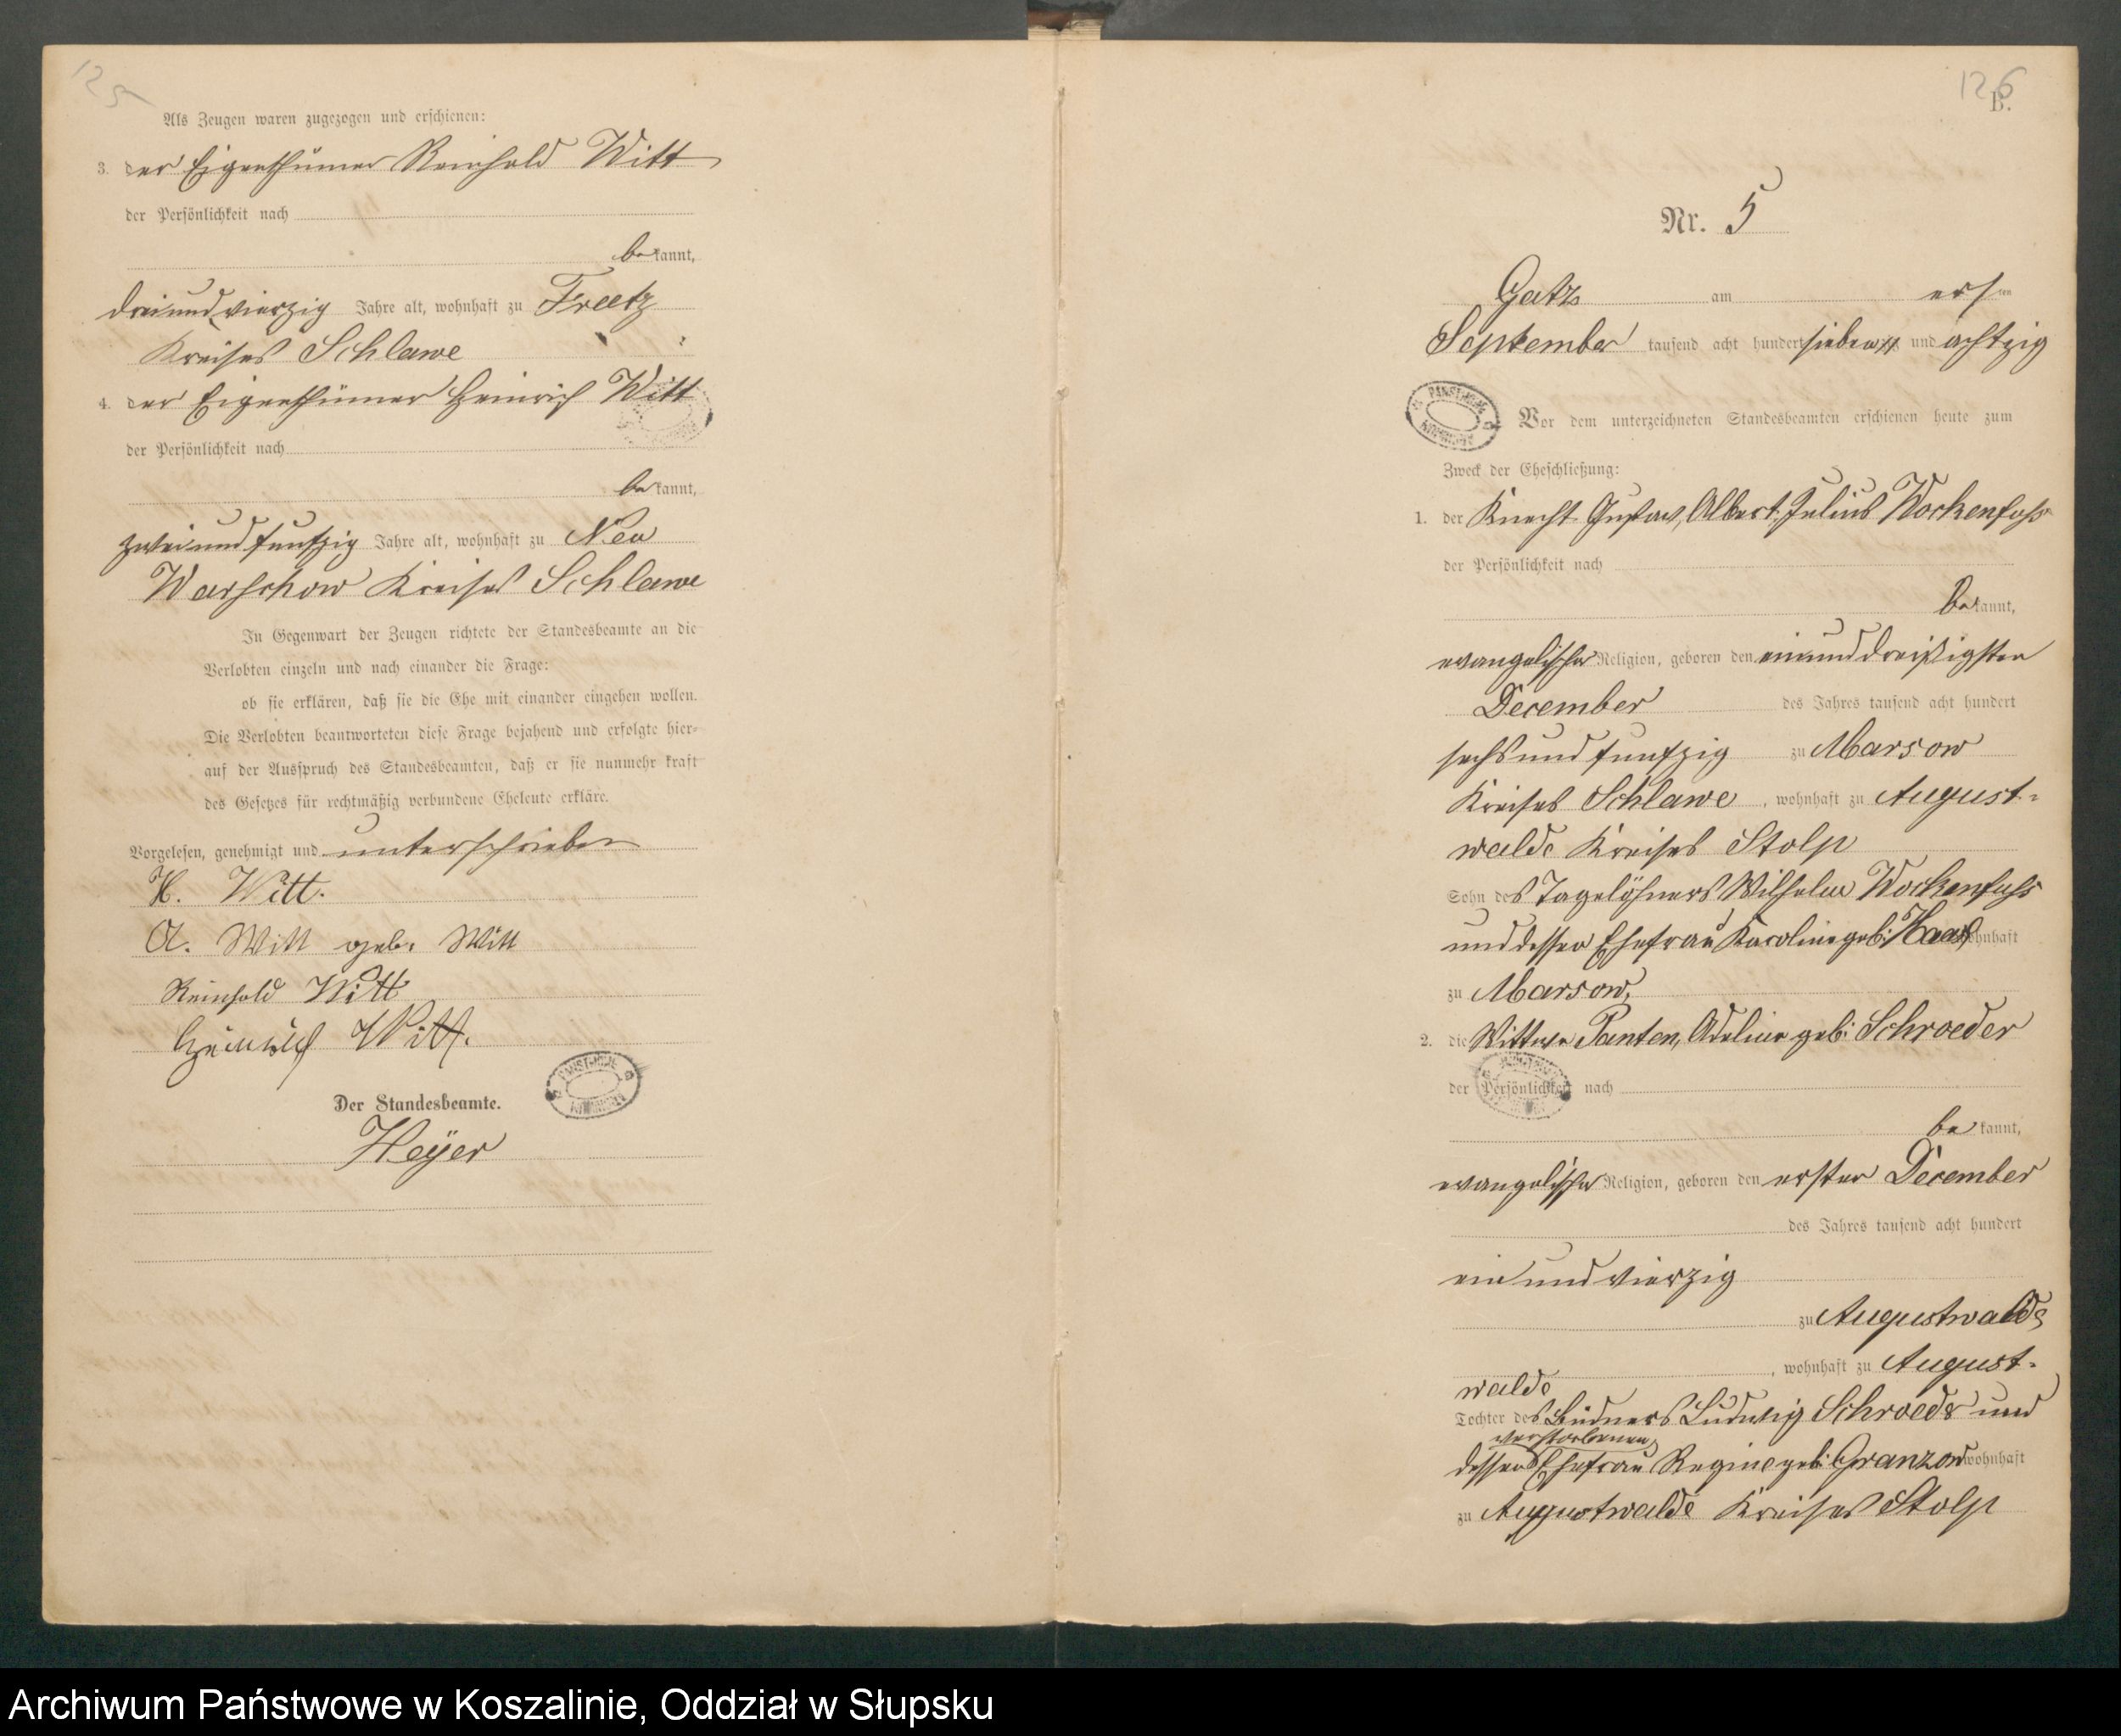 125
Als Zeugen waren zugezogen und erschienen:
3. der Eigenthümer Reinhold Witt
der Persönlichkeit nach
bekannt,
dreiundvierzig Jahre alt, wohnhaft zu Freetz
Kreises Schlawe
4. der Eigenthümer Heinrich Witt
der Persönlichkeit nach
bekannt,
zweiundfunfzig Jahre alt, wohnhaft zu Neu
Warschow Kreises Schlawe
In Gegenwart der Zeugen richtete der Standesbeamte an die
Verlobten einzeln und nach einander die Frage:
ob sie erklären, daß sie die Ehe mit einander eingehen wollen.
Die Verlobten beantworteten diese Frage bejahend und erfolgte hier-
auf der Ausspruch des Standesbeamten, daß er sie nunmehr kraft
des Gesetzes für rechtmäßig verbundene Eheleute erkläre.
Vorgelesen, genehmigt und unterschrieben
H. Witt.
A. Witt geb. Witt
Reinhold Witt
Heinrich Witt.
Der Standesbeamte.
Heÿer
126
B.
Nr. 5
Gatz am ersten
September tausend acht hundert sieben und achtzig
Vor dem unterzeichneten Standesbeamten erschienen heute zum
Zweck der Eheschließung:
1. der Knecht Gustav, Albert, Julius Wockenfuss
der Persönlichkeit nach
bekannt,
evangelischer Religion, geboren den einunddreißigsten
December des Jahres tausend acht hundert
sechsundfunfzig zu Marsow
Kreises Schlawe, wohnhaft zu August-
walde Kreises Stolp
Sohn des Tagelöhners Wilhelm Wockenfuss
und dessen Ehefrau Karoline geb: Haas wohnhaft
zu Marsow,
2. die Wittwe Panten, Adeline geb: Schroeder
der Persönlichkeit nach
bekannt,
evangelischer Religion, geboren den ersten December
des Jahres tausend acht hundert
einundvierzig
zu Augustwalde
, wohnhaft zu August-
walde
Tochter des Büdners Ludwig Schroeder und
verstorbenen
dessen Ehefrau Regine geb: Granzow wohnhaft
zu Augustwalde Kreises Stolp
Archiwum Państwowe w Koszalinie, Oddział w Słupsku